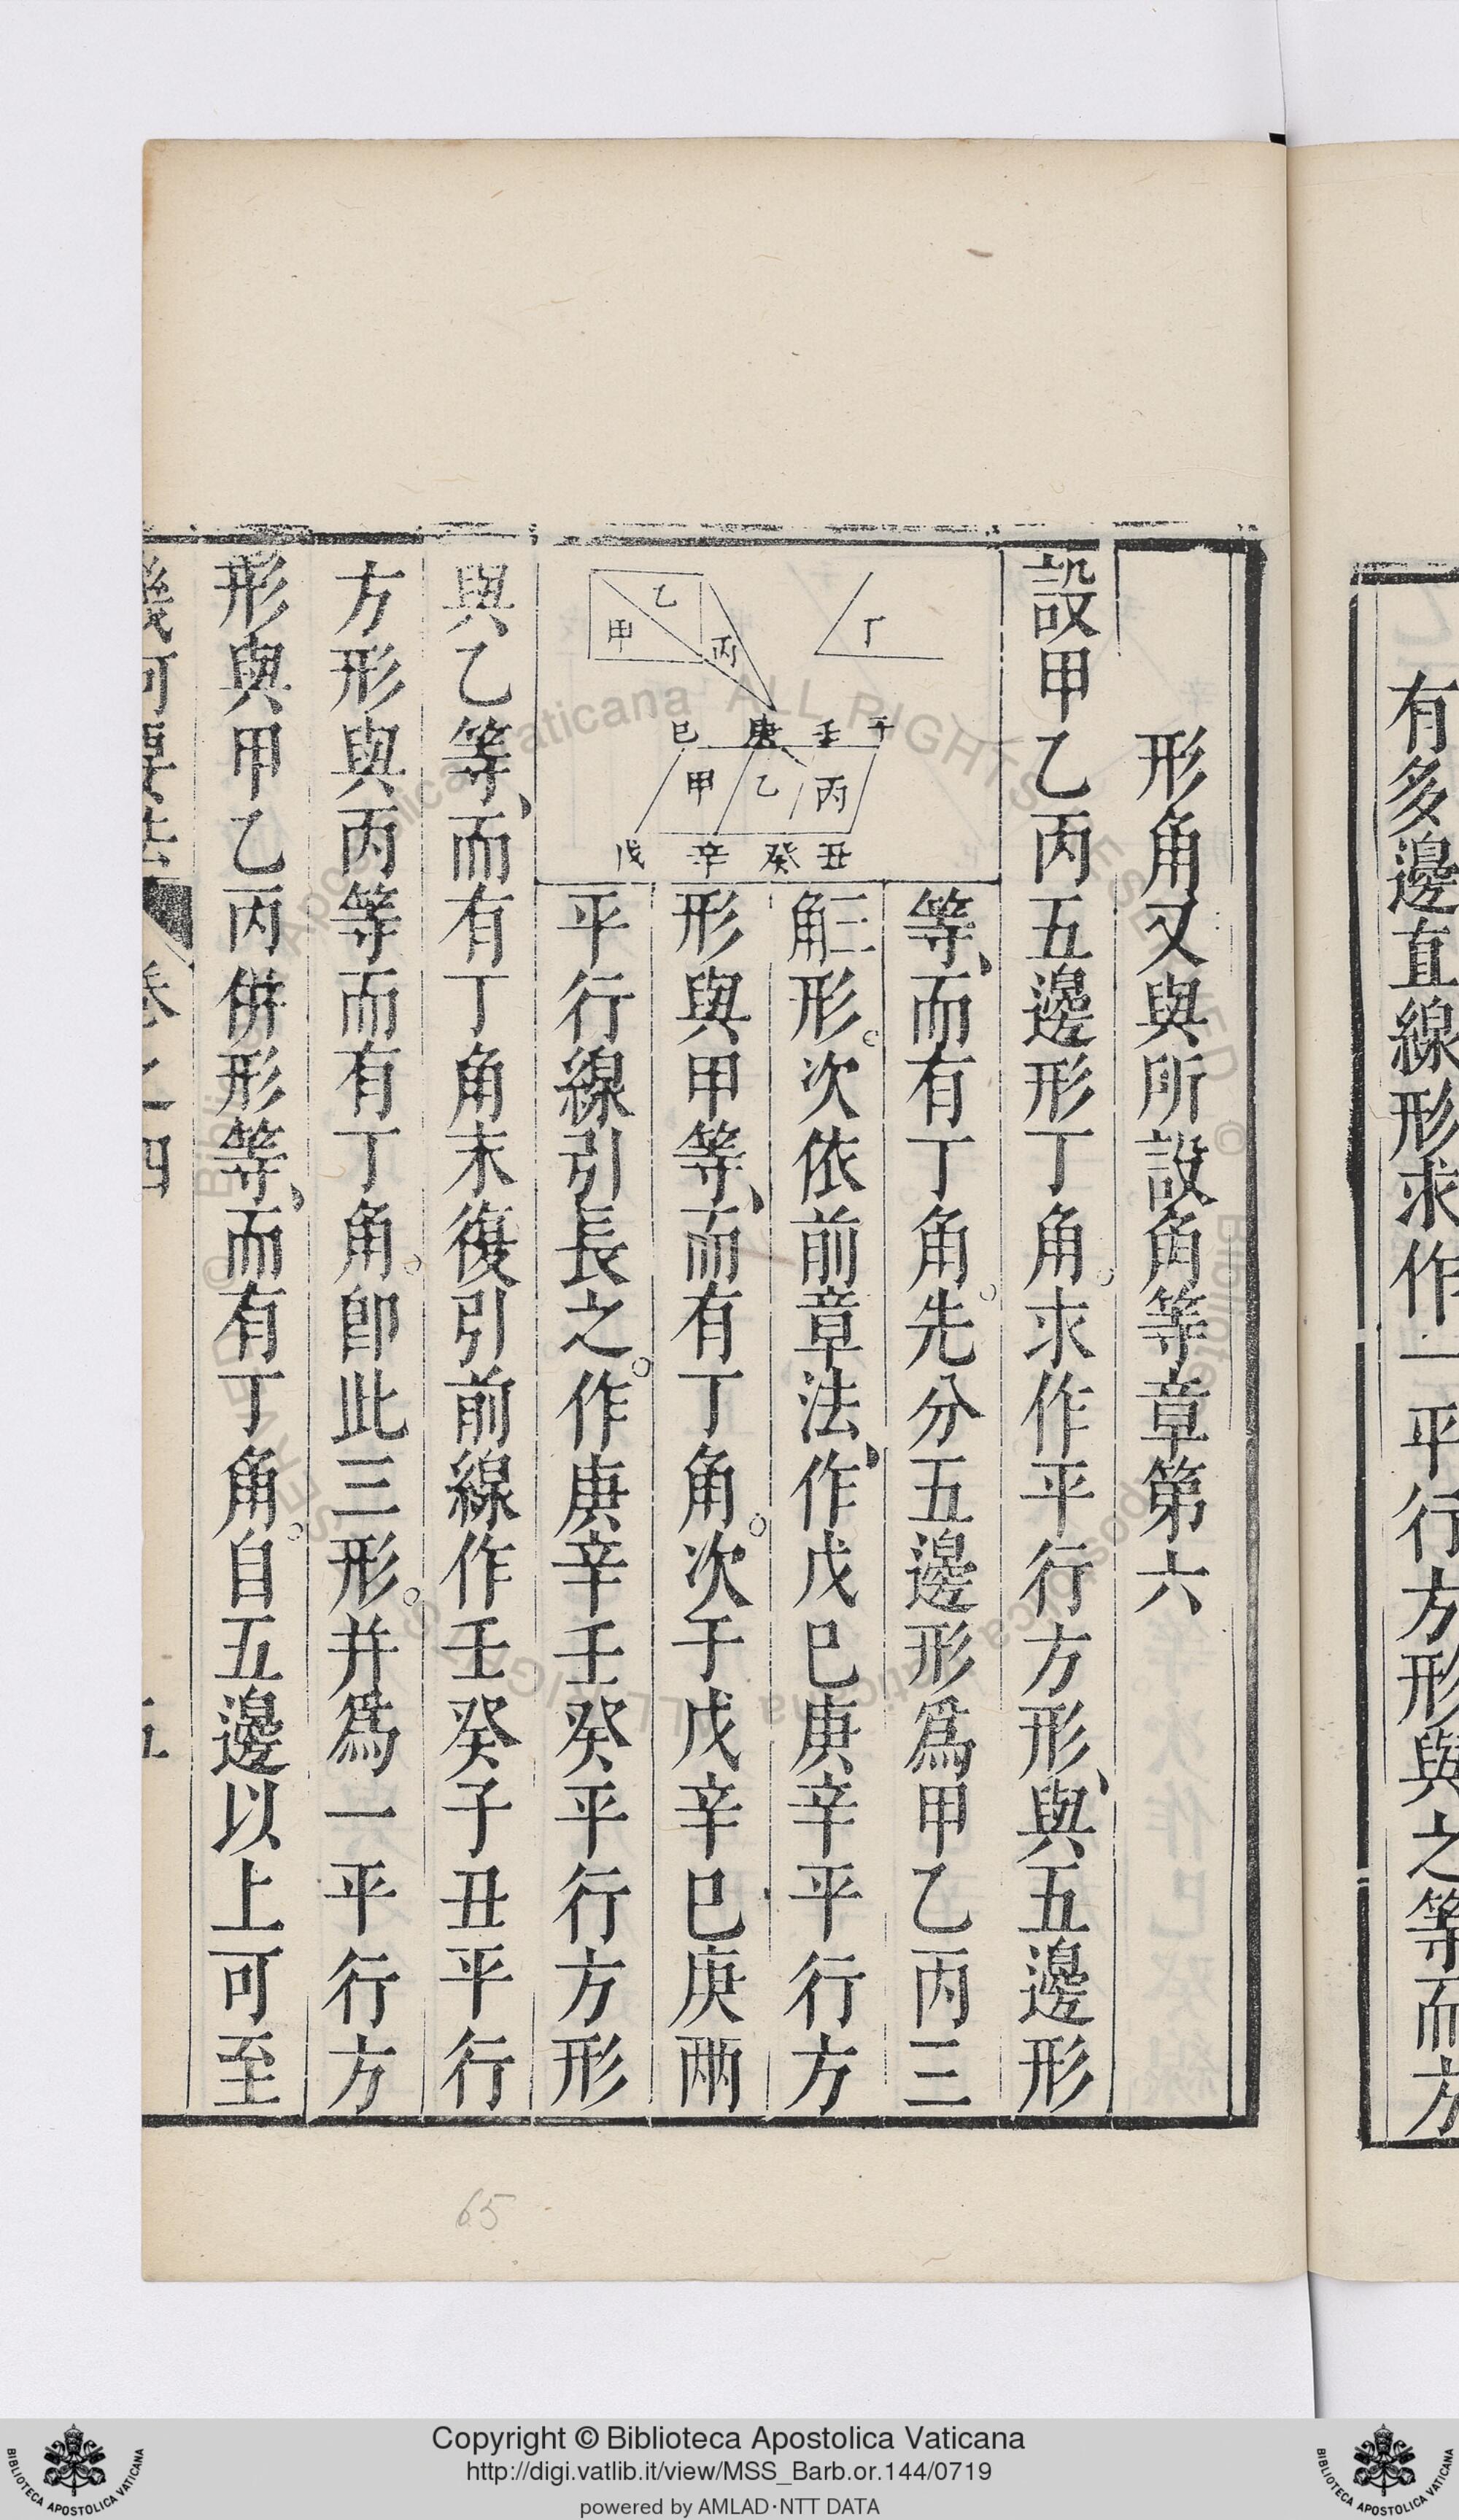 有多邊直線形求作一平行方形與之等而方
形角又與所設角等章第六
設甲乙丙五邊形丁角求作平行方形與五邊形
等而有丁角先分五邊形爲甲乙丙三
角三形次依前章法作戊巳庚辛平行方
形與甲等而有丁角次于戊辛巳庚兩
平行線引長之作庚辛壬癸平行方形
與乙等而有丁角末復引前線作壬癸子丑平行
方形與丙等而有丁角卽此三形并爲一平行方
形與甲乙丙併形等而有丁角自五邊以上可至
幾何要法 卷之四 五
丁
乙
甲
丙
巳 庚 壬 子
甲 乙 丙
戊 辛 癸 丑
65
Copyright © Biblioteca Apostolica Vaticana
http://digi.vatlib.it/view/MSS_Barb.or.144/0719
powered by AMLAD·NTT DATA
BIBLIOTECA APOSTOLICA VATICANA
BIBLIOTECA APOSTOLICA VATICANA